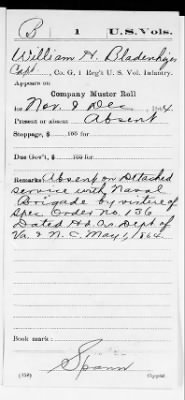 B | 1 | U.S. Vols.
William H. Bladenhiser
Capt., Co. G, 1 Reg't U. S. Vol. Infantry.
Appears on
Company Muster Roll
for Nov. & Dec., 1864.
Present or absent Absent
Stoppage, $ 100 for
Due Gov't, $ 100 for
Remarks: Absent on Detached
service with Naval
Brigade by virtue of
Spec. Order No. 136
Dated Hd. Qrs. Dept of
Va. & N.C. May 1, 1864
Book mark:
Spann
(358) Copyist.